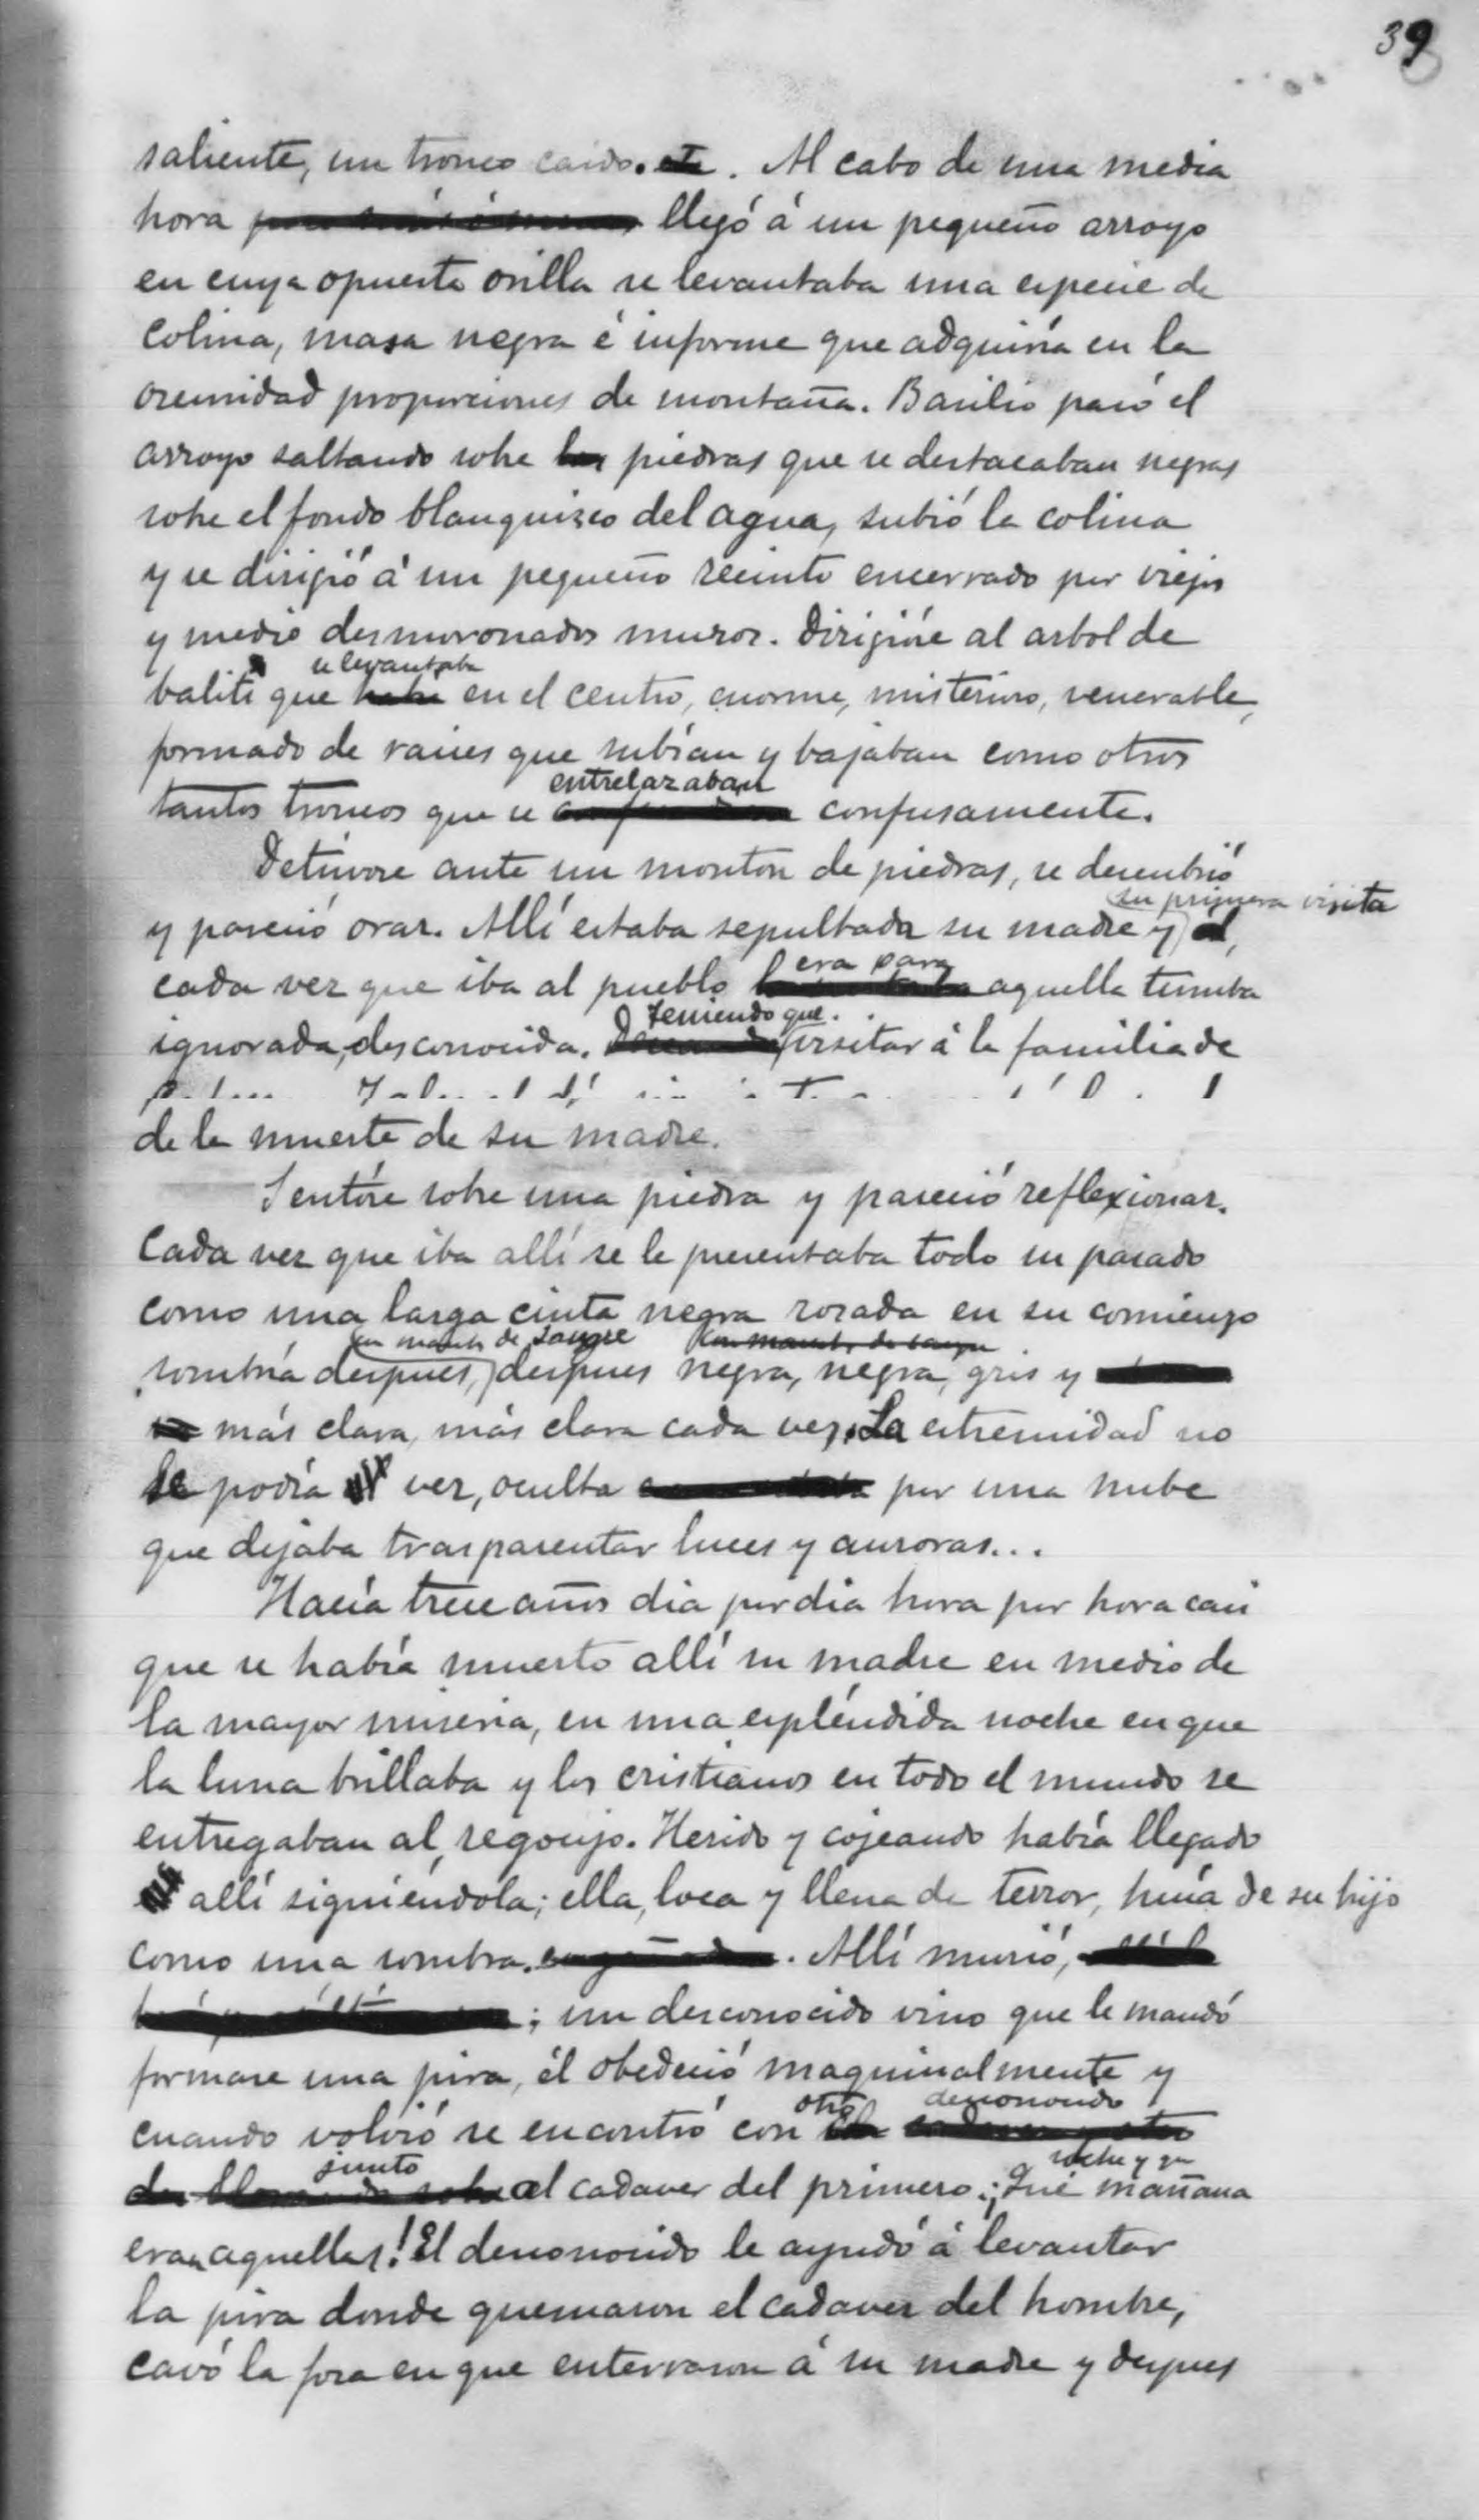 39
saliente, un tronco caido. etc. Al cabo de una media
hora llegó á un pequeño arroyo
en cuya opuesta orilla se levantaba una especie de
colina, masa negra é informe que adquiría en la
oscuridad proporciones de montaña. Basilio pasó el
arroyo saltando sobre las piedras que se destacaban negras
sobre el fondo blanquizco del agua, subió la colina
y se dirigió á un pequeño recinto encerrado por viejos
y medio desmoronados muros. Dirigióse al arbol de
se levantaba
baliti que en el centro, enorme, misterioso, venerable,
formado de raices que subían y bajaban como otros
entrelazaban
tantos troncos que se confusamente.
Detúvose ante un montón de piedras, se descubrió
su primera visita
y pareció orar. Allí estaba sepultada su madre y
era para
cada vez que iba al pueblo aquella tumba
Teniendo que
ignorada, desconocida. visitar á la familia de
de la muerte de su madre.
Sentóse sobre una piedra y pareció reflexionar.
Cada vez que iba allí se le presentaba todo su pasado
como una larga cinta negra rosada en su comienzo
con manchas de sangre con manchas de sangre
sombría despues, despues negra, negra, gris y
más clara, más clara cada vez. La estremidad no
se podía ver, oculta por una nube
que dejaba trasparentar luces y auroras...
Hacía trece años dia por dia hora por hora casi
que se había muerto allí su madre en medio de
la mayor miseria, en una espléndida noche en que
la luna brillaba y los cristianos en todo el mundo se
entregaban al regocijo. Herido y cojeando había llegado
allí siguiéndola; ella, loca y llena de terror, huía de su hijo
como una sombra. Allí murió,
; un desconocido vino que le mandó
formase una pira, él obedeció maquinalmente y
otro desconocido
cuando volvió se encontró con
junto noche y qué
al cadaver del primero. ¡Qué mañana
eran aquellas! El desconocido le ayudó á levantar
la pira donde quemaron el cadaver del hombre,
cavó la fosa en que enterraron á su madre y despues